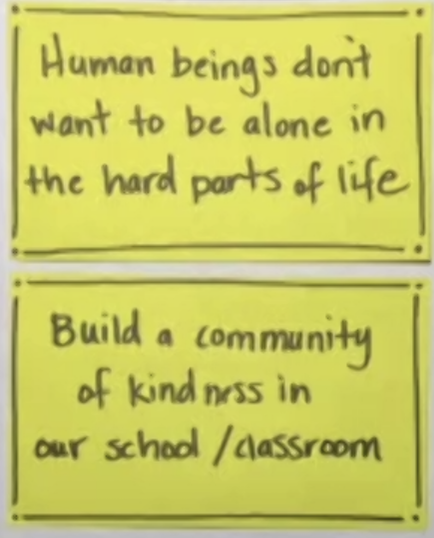 Human beings don't
want to be alone in
the hard parts of life
Build a community
of kindness in
our school/classroom